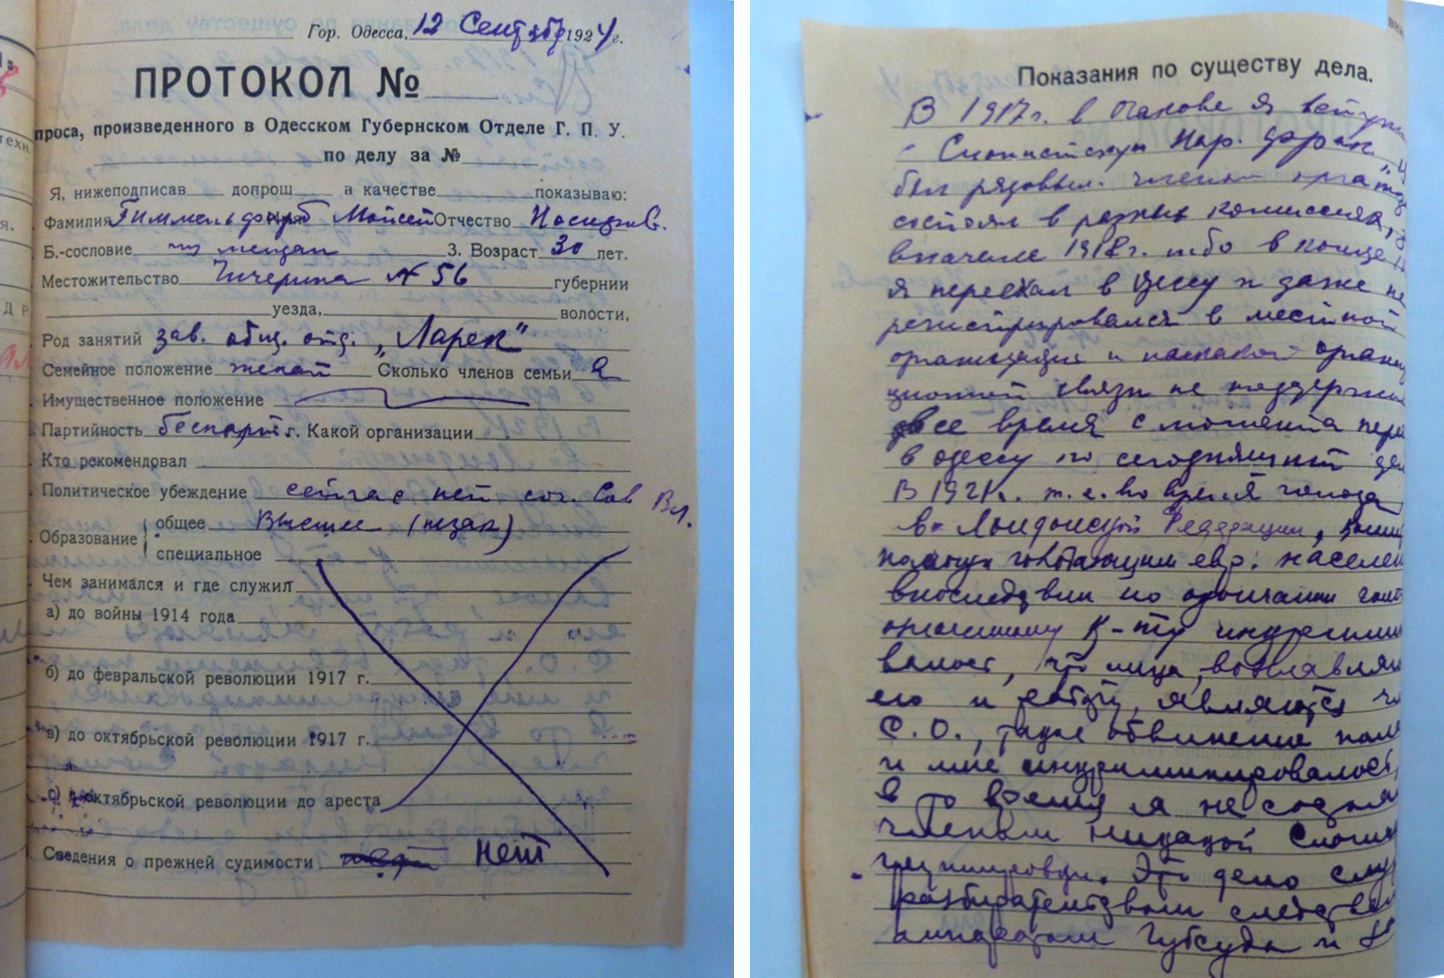 Гор. Одесса, 12 Сентяб 1924 г.
ПРОТОКОЛ №
проса, произведенного в Одесском Губернском Отделе Г. П. У.
по делу за №
Я, нижеподписав допрош а качестве показываю:
Фамилия Гиммельфарб Мойсей Отчество
Б.-сословие из мещан 3. Возраст 30 лет.
Местожительство Чичерина № 56 губернии
уезда, волости,
Род занятий зав. общ. отд. „Ларек"
Семейное положение женат . Сколько членов семьи 2
Имущественное положение
Партийность беспарт. г. Какой организации
Кто рекомендовал
Политическое убеждение сейчас нет соч. Сов Вл.
Образование общее Высшее
специальное
Чем занимался и где служил
а) до войны 1914 года
б) до февральской революции 1917 г.
в) до октябрьской революции 1917 г.
с) октябрьской революции до ареста
Сведения о прежней судимости нет
Показания по существу дела.
В 1917г. в Очакове я вступи
в Сионистскую Нар. фрак.
был рядовым членом
состоял в разных комиссиях,
вначале 1918г. либо в конце
я переехал в Одессу и даже не
регистрировался в местной
организации и никакой органи
ционной связи не поддержи
все время с момента пере
в Одессу по сегодняшний де
В 1921г. т.е. во время голода
в Лондонской Федерации,
помощи голодающим евр. населен
впоследствии по окончании
К-ту инкримини
валось, что лица, возглавляв
его и работу, являются
С.О., такое обвинение
и мне инкриминировалось,
в то время я не состоял
членом никакой Сионис
группировки. Это дело
разбирательством следствен
аппаратом Губсуда и